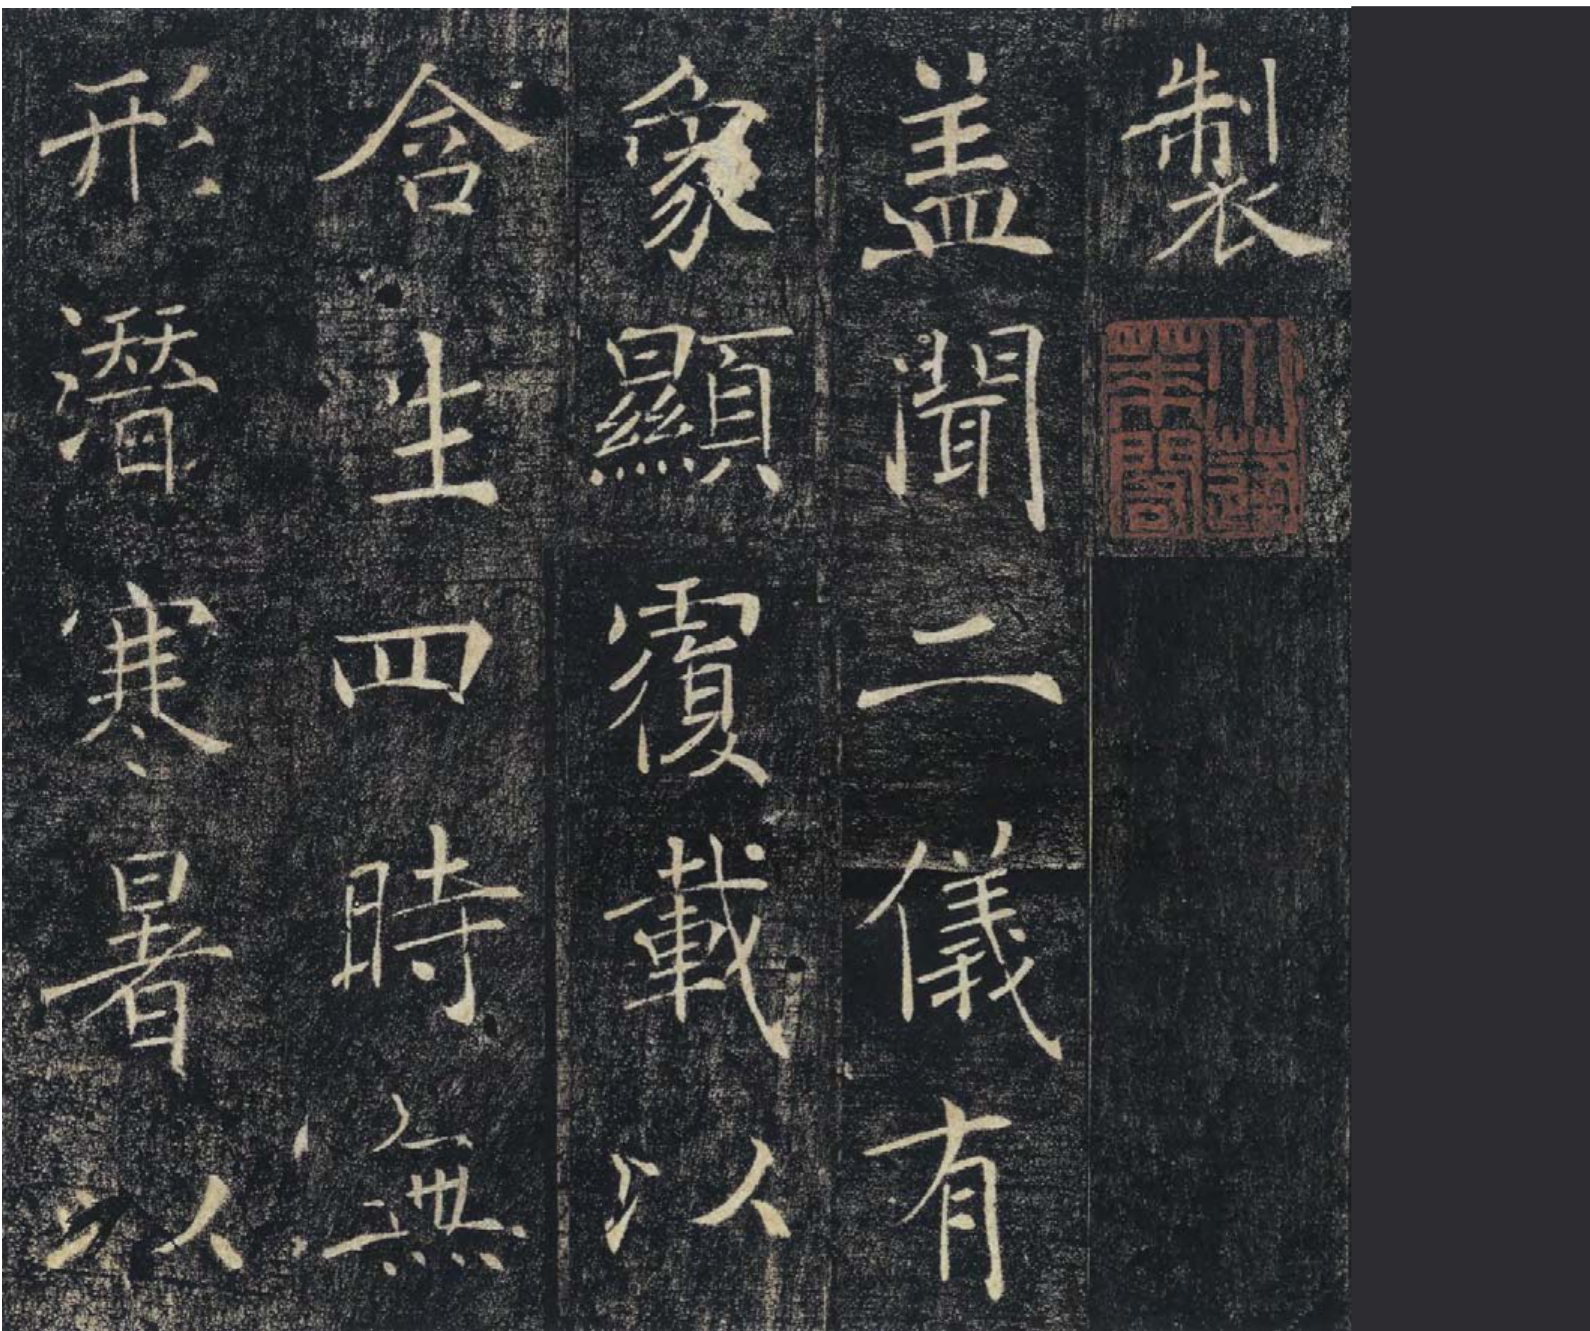 製
小蓬
萊閣
盖聞二儀有
象顯覆載以
含生四時無
形潛寒暑以